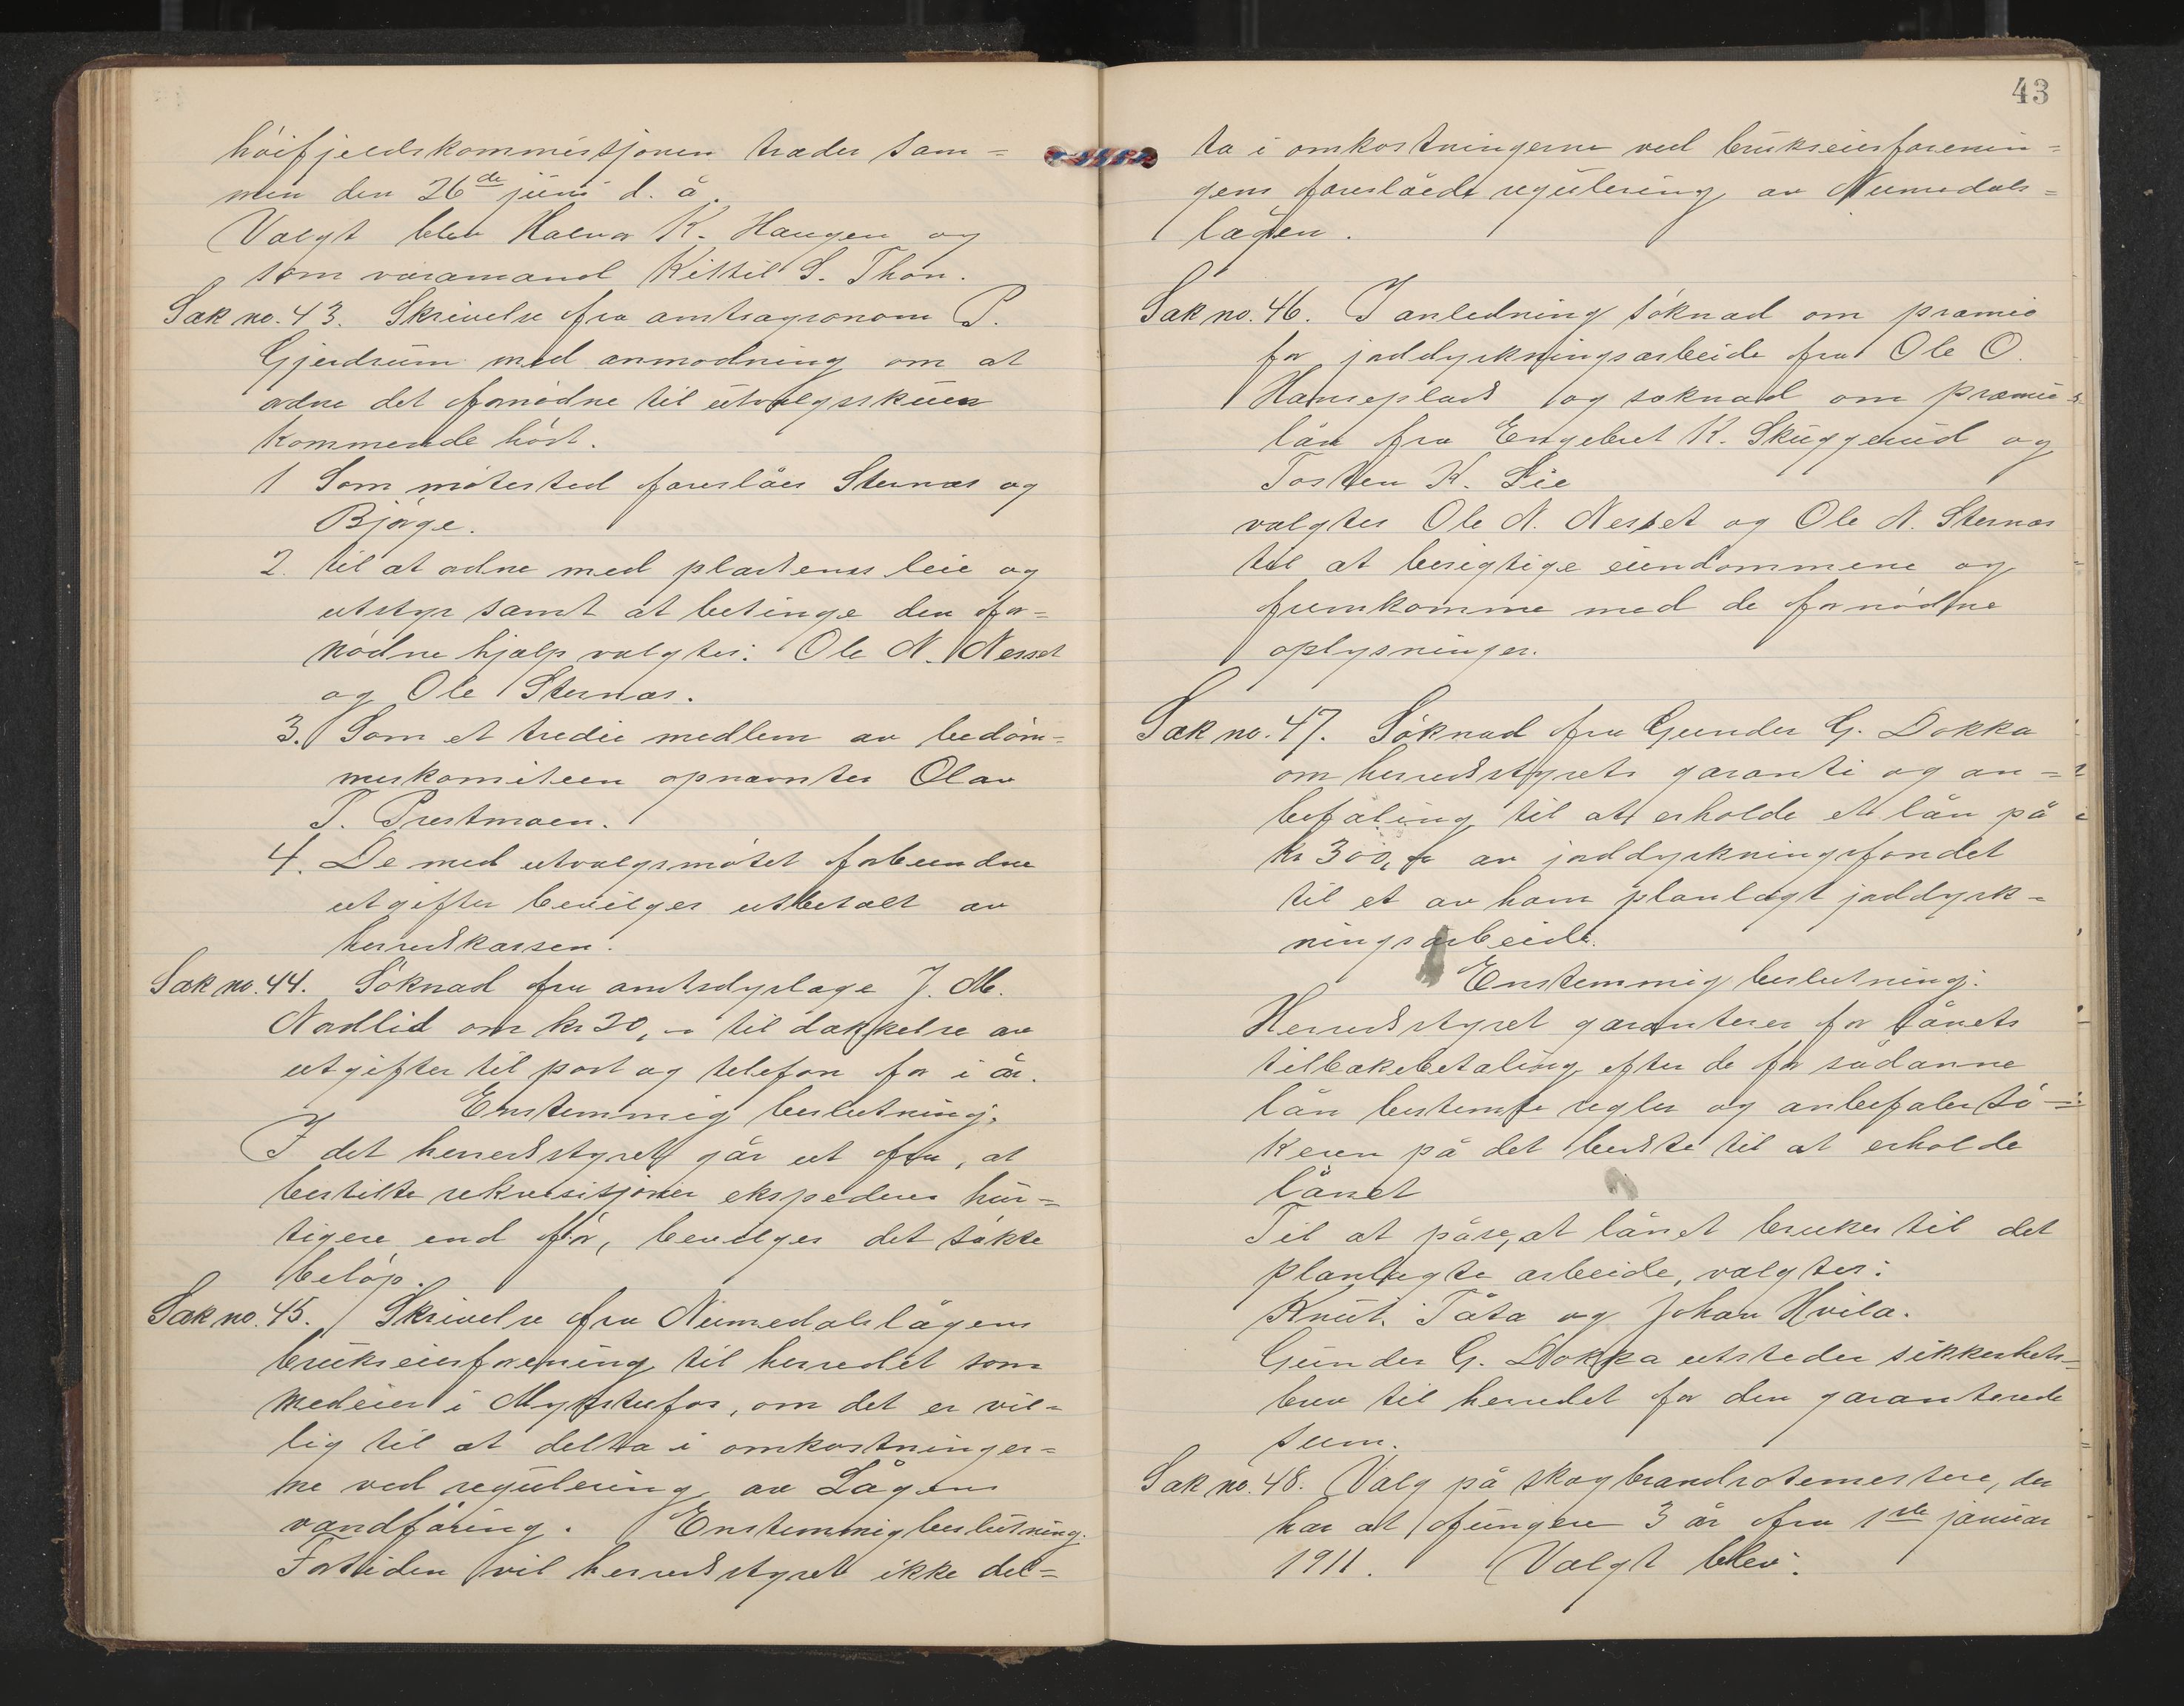 höifjeldskommissjonen træder sam=
men den 26de juni d. å.
Valgt blev Halvor K. Haugen og
som varamand Kittil S. Thon.
Sak no. 43. Skrivelse fra amtsagronom P.
Gjerdrum med anmodning om at
ordne det fornødne til utvalgsskuen
kommende høst.
1 Som møtested foreslåes Sternes og
Bjørge.
2. til at ordne med pladsens leie og
utstyr samt at betinge den for=
nødne hjælp valgtes: Ole N. Nesset
og Ole Sternes.
3. Som et tredie medlem av bedøm=
meskomiteen opnævntes Olav
T. Prestmoen.
4. De med utvalgsmøtet forbundne
utgifter bevilges utbetalt av
herredskassen.
Sak no. 44. Søknad fra amtsdyrlæge J. M.
Nordlid om kr 20,- til dækkelse av
utgifter til post og telefon for i år.
Enstemmig beslutning:
I det herredsstyret går ut fra, at
bestilte rekvisisjoner ekspederes hur=
tigere end før, bevilges det søkte
beløp.
Sak no. 45. Skrivelse fra Numedalslågens
brukseierforening til herredet som
medeier i Mykstufos, om det er vil=
lig til at delta i omkostninger=
ne ved regulering av Lågens
vandføring. Enstemmig beslutning.
Fortiden vil herredsstyret ikke del=
43
ta i omkostningerne ved brukseierforenin=
gens foreslåede regulering av Numedals=
lågen.
Sak no. 46. I anledning søknad om præmie
for jorddyrkningsarbeide fra Ole O.
Hanseplads og søknad om præmie=
lån fra Engebret K. Skuggerud og
Tosten K. Lie
valgtes Ole N. Nesset og Ole N. Sternes
til at besigtige eiendommene og
fremkomme med de fornødne
oplysninger.
Sak no. 47. Søknad fra Gunder G. Dokka
om herredsstyrets garanti og an=
befaling til at erholde et lån på
kr 300,- av jorddyrkningsfondet
til et av ham planlagt jorddyrk=
ningsarbeide.
Enstemmig beslutning:
Herredsstyret garanterer for lånets
tilbakebetaling efter de for sådanne
lån bestemte regler og anbefaler sø=
keren på det bedste til at erholde
lånet
Til at påse, at lånet brukes til det
planlagte arbeide, valgtes:
Knut Tåta og Johan Hvila.
Gunder G. Dokka utsteder sikkerhets=
brev til herredet for den garanterede
sum.
Sak no. 48. Valg på skogbrandrotemestere, der
har at fungere 3 år fra 1ste januar
1911. Valgt blev: